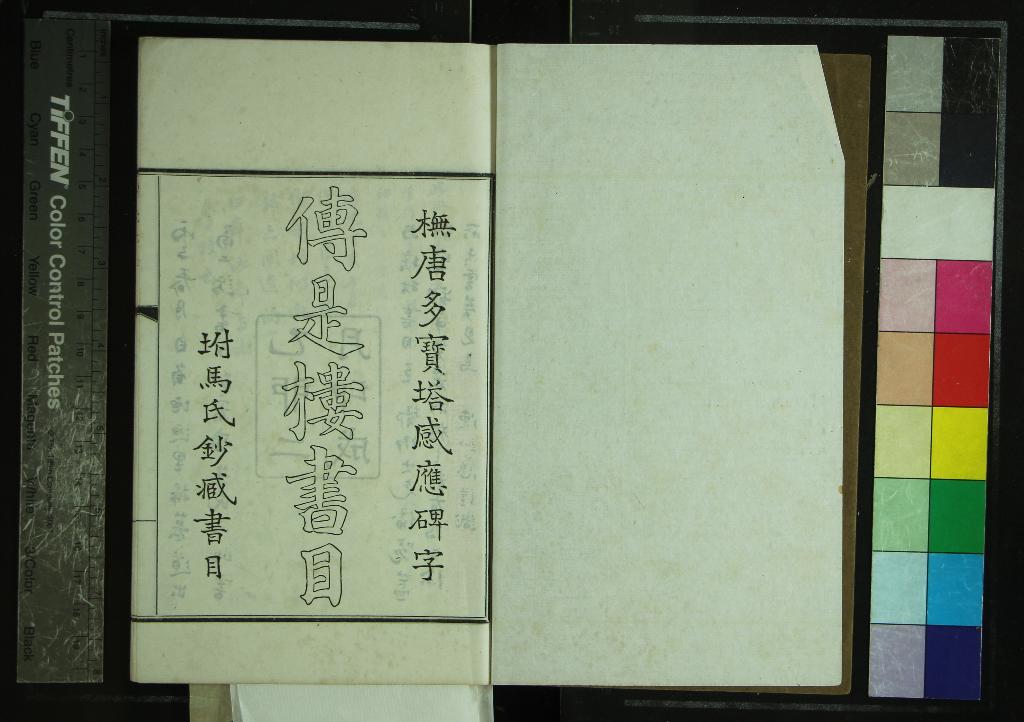 橅唐多寶塔感應碑字
傳是樓書目
坿馬氏鈔藏書目
TIFFEN Color Control Patches
Centimetres
Inches
Blue
Cyan
Green
Yellow
Red
Magenta
White
3/Color
Black